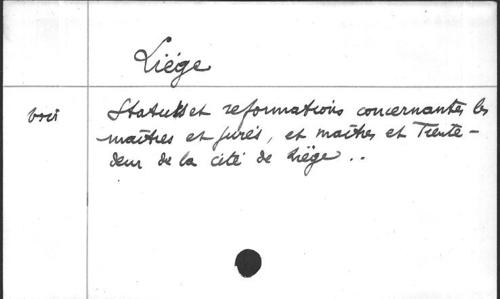 Liége
voir Statuts et reformations concernantes les
maîtres et jurés, et maîtres et Trente-
deux de la cité de Liége ..